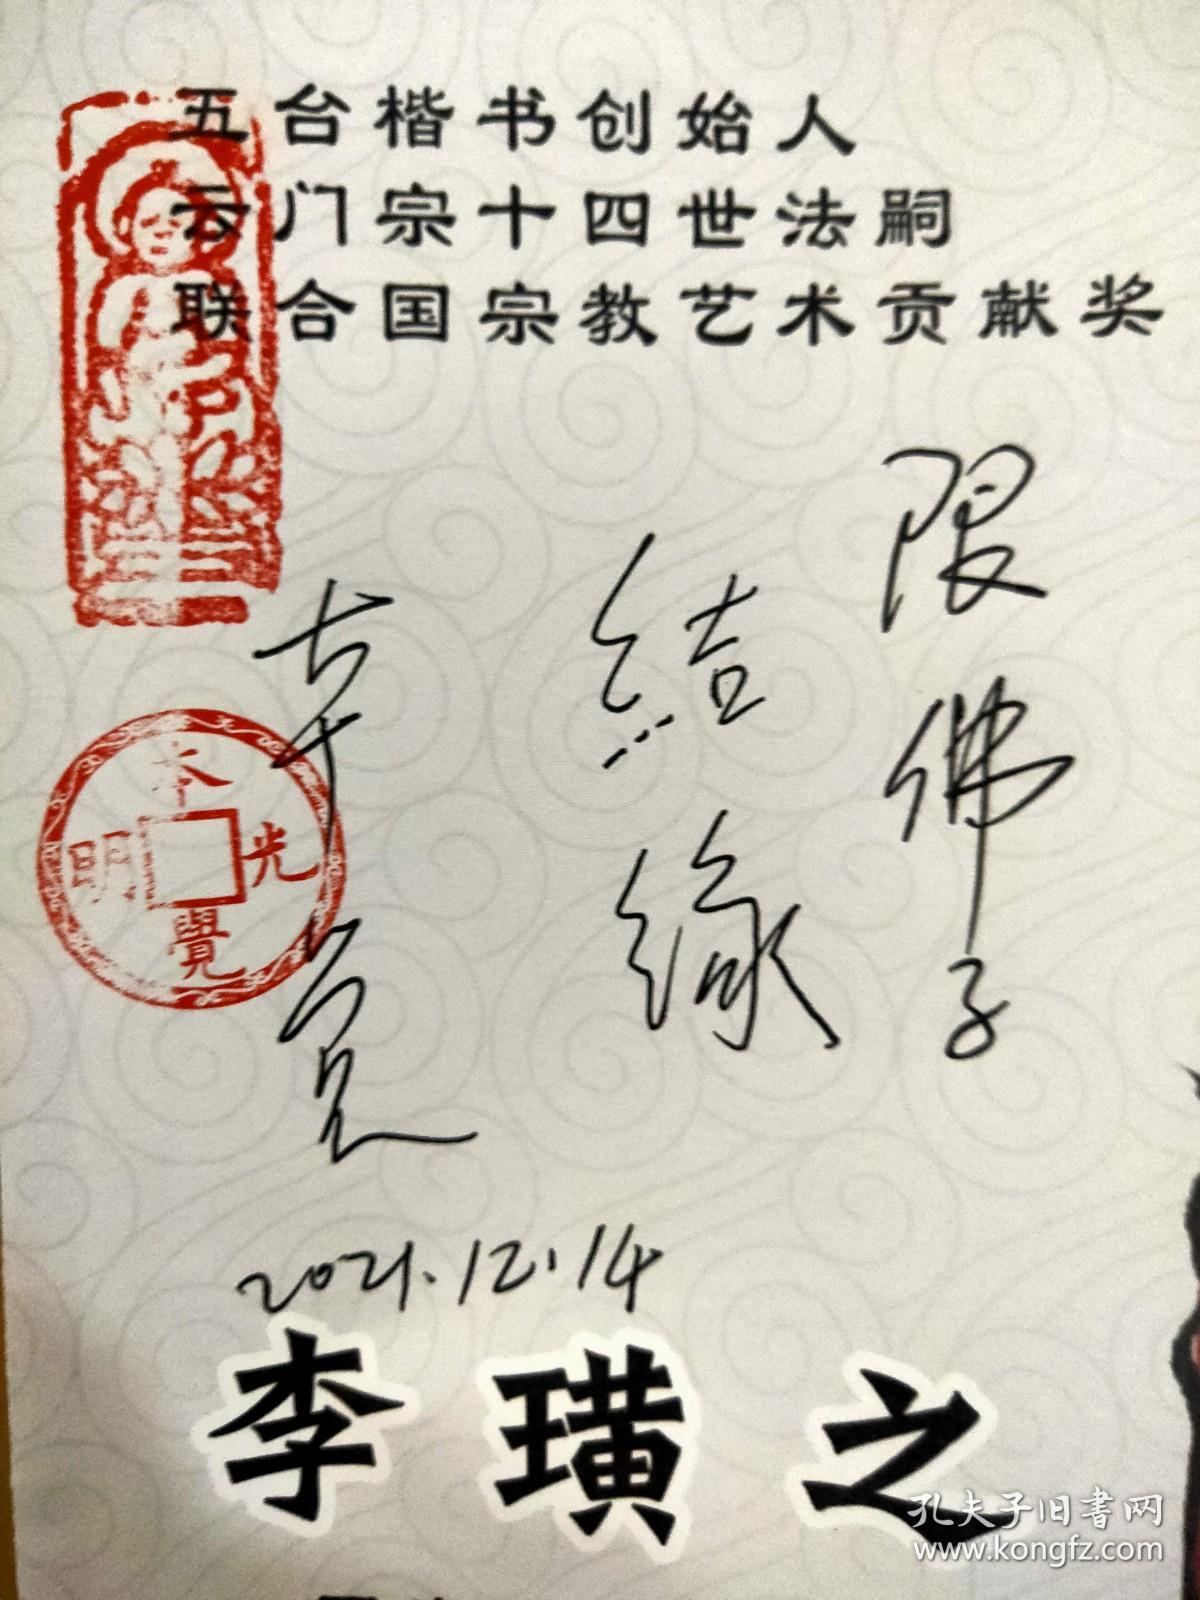 五台楷书创始人
云门宗十四世法嗣
联合国宗教艺术贡献奖
限佛子
结缘
本光明觉
2021.12.14
李璜之
孔夫子旧书网
www.kongfz.com